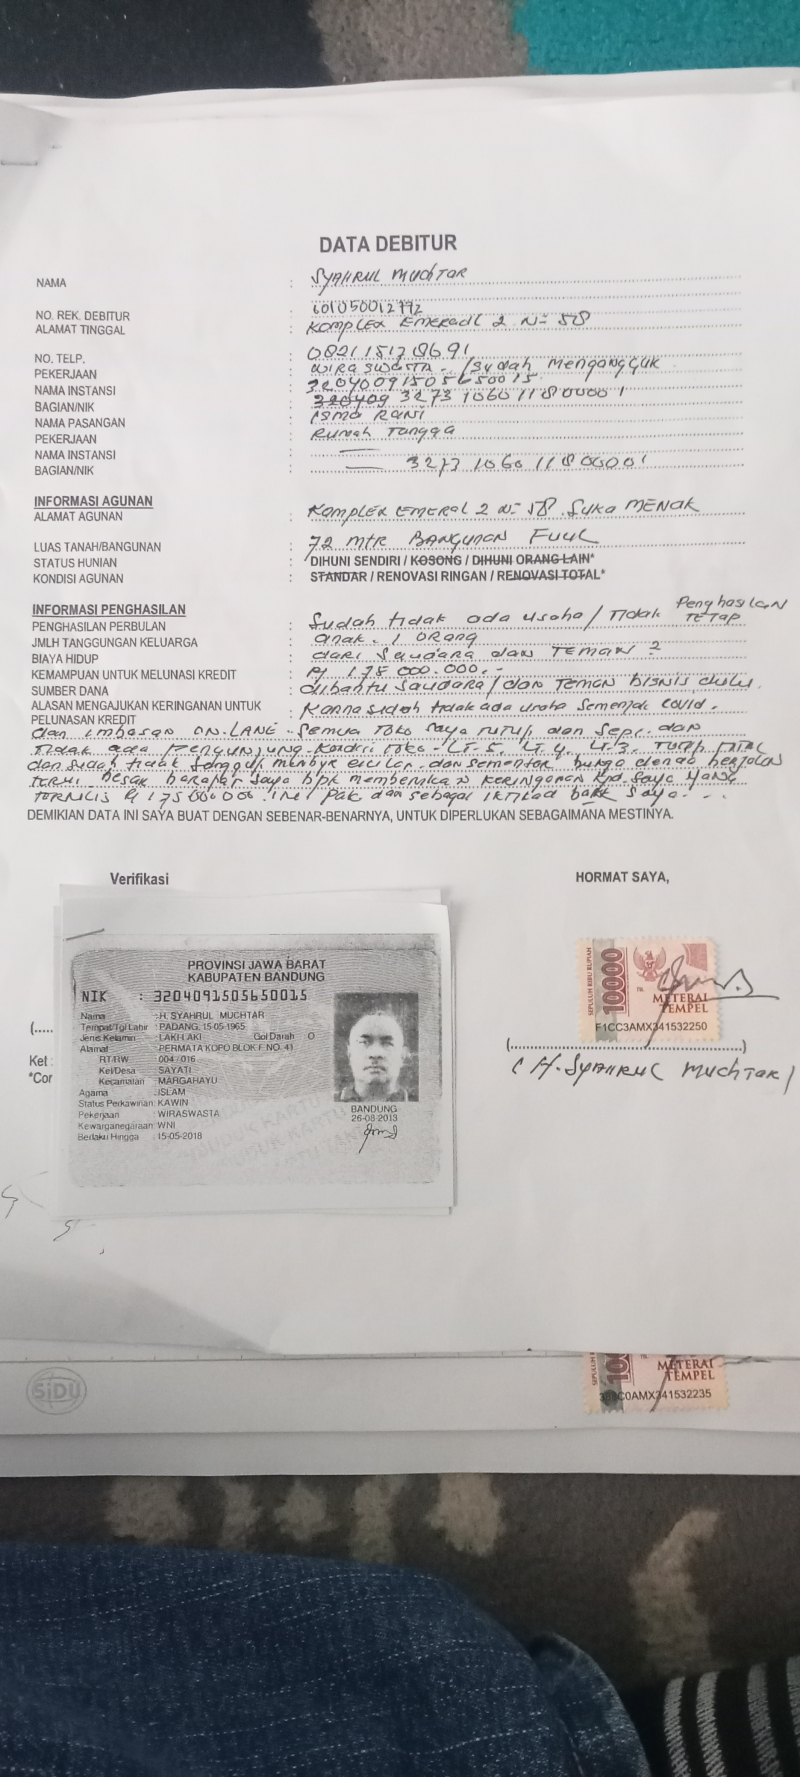 DATA DEBITUR
NAMA : SYAHRUL MUCHTAR
NO. REK. DEBITUR : 601050012792
ALAMAT TINGGAL : KOMPLEX EMERADL 2 N= 58
NO. TELP. :
PEKERJAAN : WIRA SWASTA / Sudah Menganggur
NAMA INSTANSI : 3204091505650015
BAGIAN/NIK : 320409 3273 1060 1180 0001
NAMA PASANGAN : ISMA RANI
PEKERJAAN : Rumah Tangga
NAMA INSTANSI : —
BAGIAN/NIK : — 3273 1060 1180 0001
INFORMASI AGUNAN
ALAMAT AGUNAN : KOMPLEX EMERAL 2 N= 58. Suka MENAK
LUAS TANAH/BANGUNAN : 72 MTR BANGUNAN FUUL
STATUS HUNIAN : DIHUNI SENDIRI / KOSONG / DIHUNI ORANG LAIN*
KONDISI AGUNAN : STANDAR / RENOVASI RINGAN / RENOVASI TOTAL*
INFORMASI PENGHASILAN
PENGHASILAN PERBULAN : Sudah tidak ada usaha / Tidak Penghasilan TETAP
JMLH TANGGUNGAN KELUARGA : anak. 1 orang
BIAYA HIDUP : dari Saudara dan TEMAN 2
KEMAMPUAN UNTUK MELUNASI KREDIT : Rp 175 000.000,-
SUMBER DANA : dibantu Saudara / dan Teman bisnis dulu.
ALASAN MENGAJUKAN KERINGANAN UNTUK
PELUNASAN KREDIT : Karna sudah tidak ada usaha Semenjak covid.
dan imbasan ON.LANE. Semua Toko saya tutup dan Sepi. dan
Tidak ada Pengunjung. Kondisi toko. LT.5. LT.4. LT.3. TUTUP TOTAL
dan sudah tidak Sanggup dan sementar bunga denda berjalan
terus. besar harapan Saya bpk memberikan KERINGANAN Saya YANG
TORTULIS Rp 175 000 000. INI Pak. dan sebagai iktikad baik Saya...
DEMIKIAN DATA INI SAYA BUAT DENGAN SEBENAR-BENARNYA, UNTUK DIPERLUKAN SEBAGAIMANA MESTINYA.
Verifikasi
HORMAT SAYA,
PROVINSI JAWA BARAT
KABUPATEN BANDUNG
NIK : 3204091505650015
Nama : H. SYAHRUL MUCHTAR
Tempat/Tgl Lahir : PADANG, 15-05-1965
Jenis Kelamin : LAKI-LAKI Gol Darah O
Alamat : PERMATA KOPO BLOK F NO. 41
RT/RW : 004 / 016
Kel/Desa : SAYATI
Kecamatan : MARGAHAYU
Agama : ISLAM
Status Perkawinan: KAWIN
Pekerjaan : WIRASWASTA
Kewarganegaraan: WNI
Berlaku Hingga : 15-05-2018
BANDUNG
26-08-2013
SEPULUH RIBU RUPIAH
10000
TGL.
METERAI
TEMPEL
F1CC3AMX341532250
(....
(....)
( H. SYAHRUL MUCHTAR )
Ket
*Cor
SiDU
METERAI
TEMPEL
C0AMX341532235